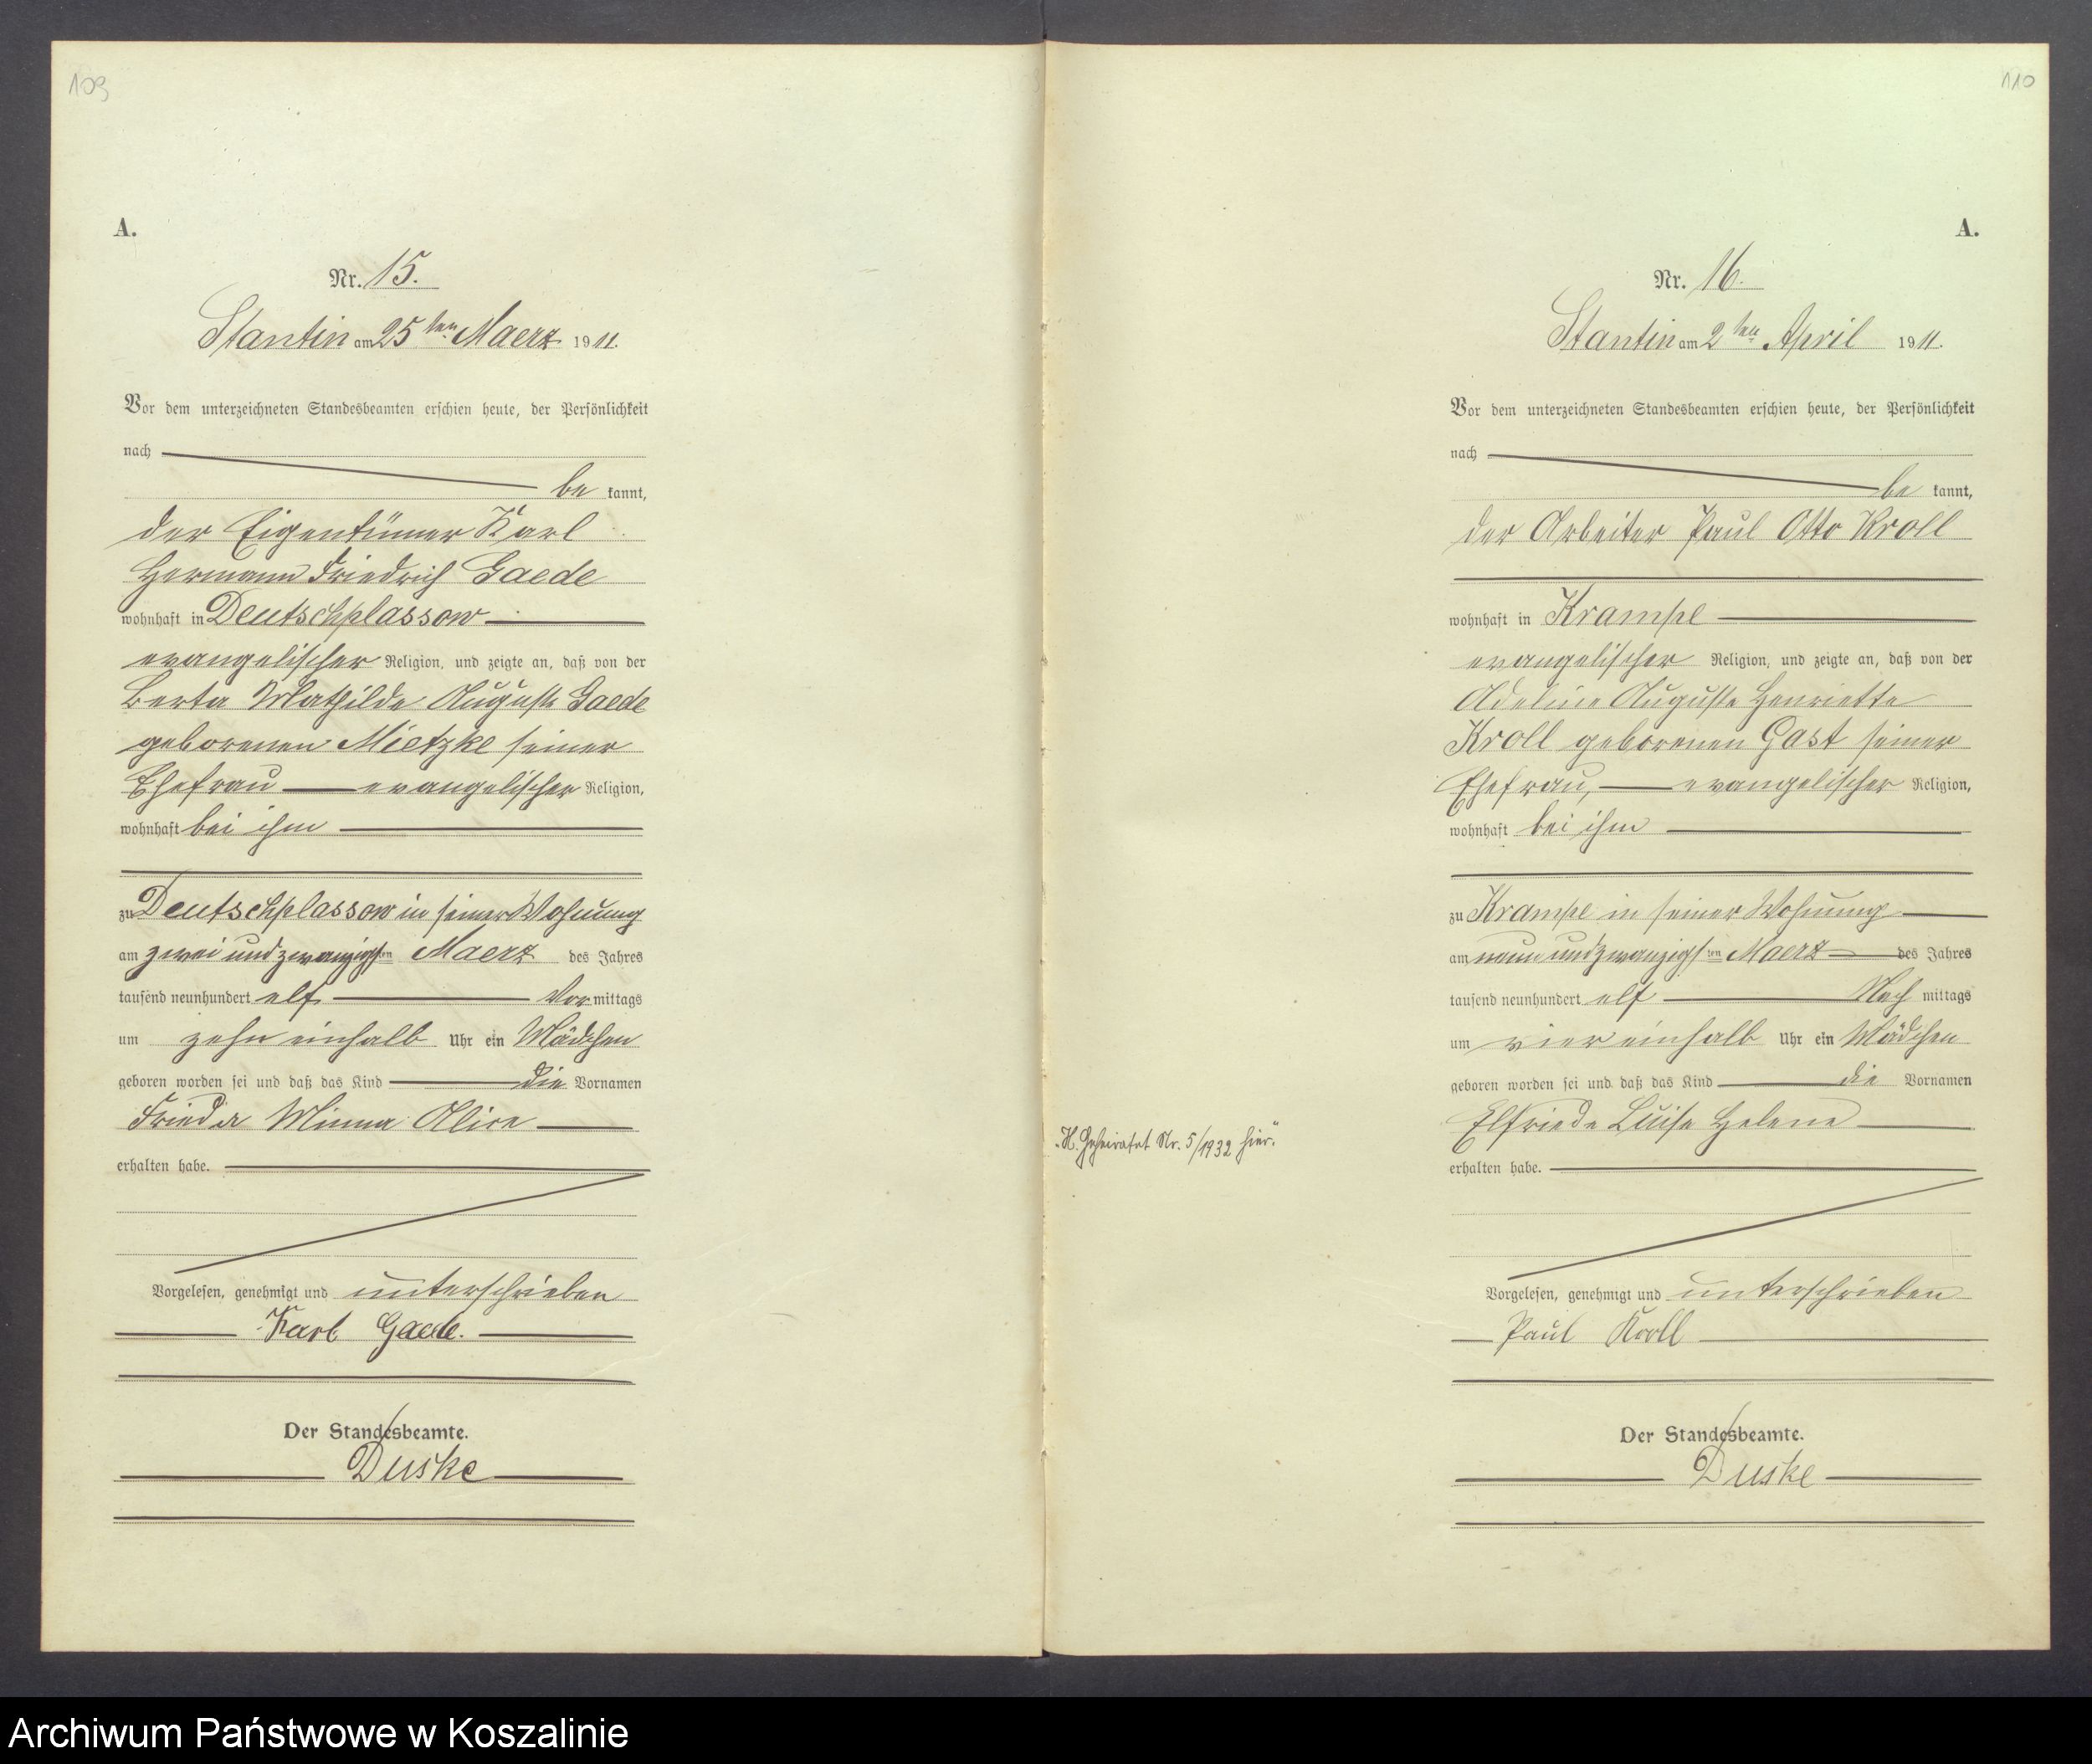 109
A.
Nr. 15.
Stantin am 25ten Maerz 1911.
Vor dem unterzeichneten Standesbeamten erschien heute, der Persönlichkeit
nach
be kannt,
der Eigentümer Karl
Hermann Friedrich Gaede
wohnhaft in Deutschplassow
evangelischer Religion, und zeigte an, daß von der
Berta Mathilde Auguste Gaede
geborenen Mietzke seiner
Ehefrau evangelischer Religion,
wohnhaft bei ihm
zu Deutschplassow in seiner Wohnung
am zwei und zwanzigsten Maerz des Jahres
tausend neunhundert elf Vor mittags
um zehn einhalb Uhr ein Mädchen
geboren worden sei und daß das Kind die Vornamen
Frieda Minna Alice
erhalten habe.
Vorgelesen, genehmigt und unterschrieben
Karl Gaede.
Der Standesbeamte.
Duske
110
A.
Nr. 16.
Stantin am 2ten April 1911.
Vor dem unterzeichneten Standesbeamten erschien heute, der Persönlichkeit
nach
be kannt,
der Arbeiter Paul Otto Kroll
wohnhaft in Krampe
evangelischer Religion, und zeigte an, daß von der
Adeline Auguste Henriette
Kroll geborenen Gast seiner
Ehefrau, evangelischer Religion,
wohnhaft bei ihm
zu Krampe in seiner Wohnung
am neun und zwanzigsten Maerz des Jahres
tausend neunhundert elf Nach mittags
um vier einhalb Uhr ein Mädchen
geboren worden sei und daß das Kind die Vornamen
Elfriede Luise Helene
„K. Geheiratet Nr. 5/1932 hier."
erhalten habe.
Vorgelesen, genehmigt und unterschrieben
Paul Kroll
Der Standesbeamte.
Duske
Archiwum Państwowe w Koszalinie